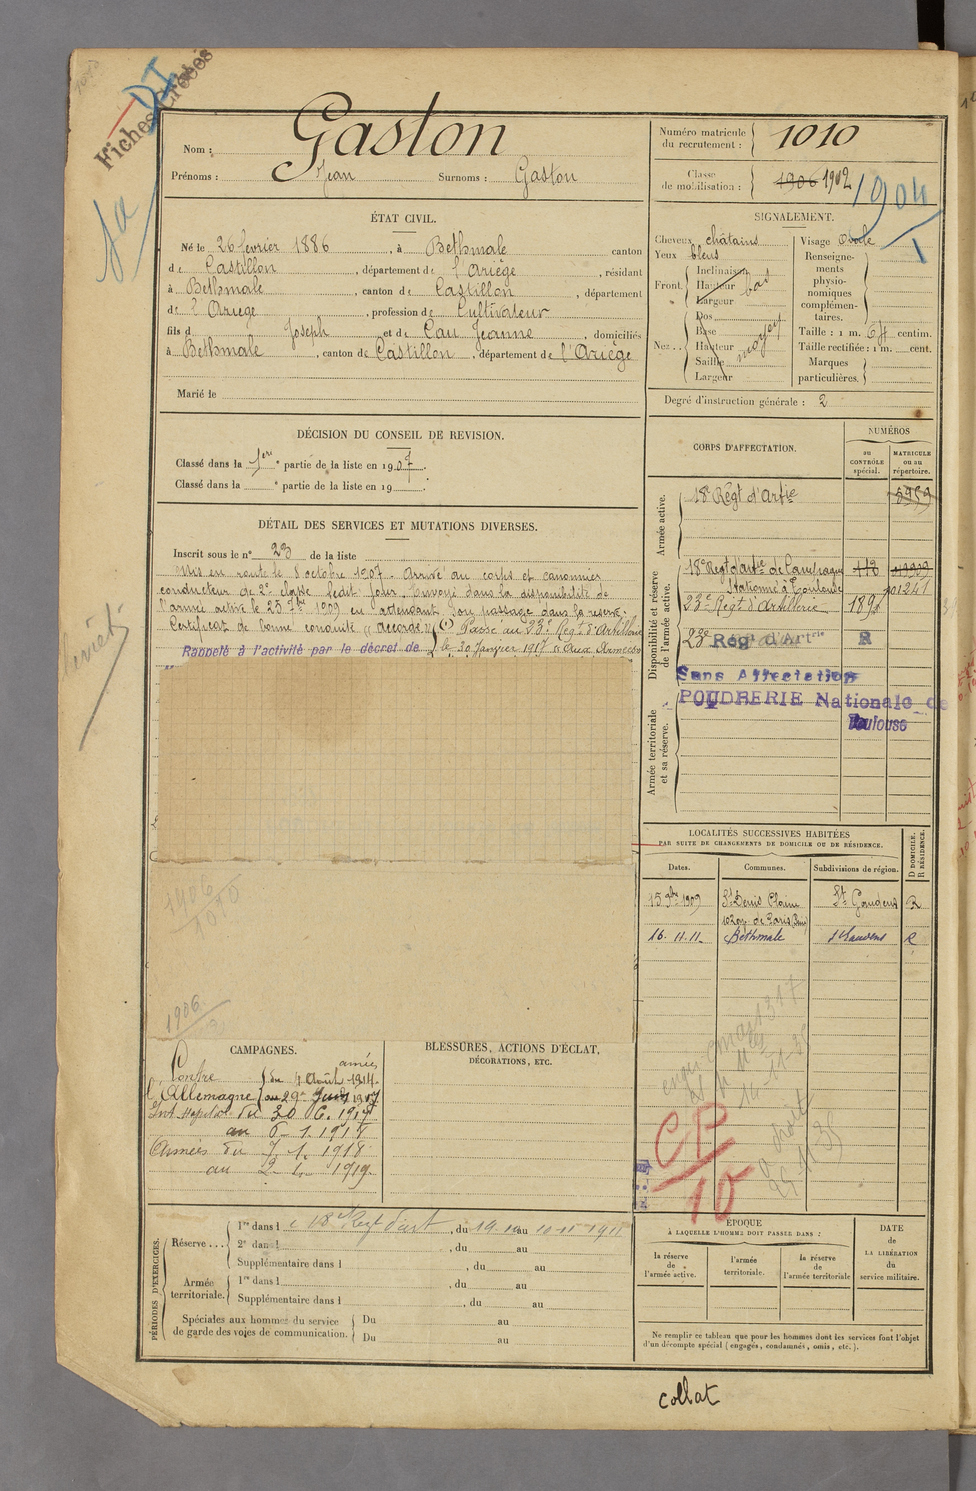 Fiches Créées
DI
Nom : Gaston
Prénoms : Jean Surnoms : Gaston
Numéro matricule du recrutement : 1010
Classe de mobilisation : 1906 1902
1904
ÉTAT CIVIL.
Né le 26 février 1886, à Bethmale canton
de Castillon, département de l'Ariège, résidant
à Bethmale, canton de Castillon, département
de l'Ariège, profession de Cultivateur
fils d Joseph et de Cau Jeanne, domiciliés
à Bethmale, canton de Castillon, département de l'Ariège
Marié le
SIGNALEMENT.
Cheveux châtains
Yeux bleus
Front. Inclinaison
Hauteur bas
Largeur
Nez . . Dos
Base
Hauteur moyen
Saillie
Largeur
Visage Ovale
Renseignements physionomiques complémentaires.
Taille : 1 m. 64 centim.
Taille rectifiée : 1 m. cent.
Marques particulières.
Degré d'instruction générale : 2
DÉCISION DU CONSEIL DE REVISION.
Classé dans la 1ere partie de la liste en 1907.
Classé dans la e partie de la liste en 19 .
DÉTAIL DES SERVICES ET MUTATIONS DIVERSES.
Inscrit sous le n° 23 de la liste
Mis en route le 8 octobre 1907. Arrivé au corps et canonnier
conducteur de 2e classe ledit jour. Envoyé dans la disponibilité de
l'armée active le 25 7bre 1909 en attendant son passage dans la réserve.
Certificat de bonne conduite "accordé" Passé au 23e Regt d'Artillerie
Rappelé à l'activité par le décret de le 30 Janvier 1917 "Aux Armées"
CORPS D'AFFECTATION.
NUMÉROS
au CONTRÔLE spécial.
MATRICULE ou au répertoire.
Armée active.
18e Régt d'Artie 5959
Disponibilité et réserve de l'armée active.
18e Regt d'artie de Campagne 112
Stationné à Toulouse 01241
23e Regt d'Artillerie
23e Régt d'Artrie R
Sans Affectation
POUDRERIE Nationale de
Toulouse
Armée territoriale et sa réserve.
LOCALITÉS SUCCESSIVES HABITÉES
PAR SUITE DE CHANGEMENTS DE DOMICILE OU DE RÉSIDENCE.
Dates. Communes. Subdivisions de région. D DOMICILE. R RÉSIDENCE.
15 9bre 1909 St Denis Plaine St Gaudens R
102 av. de Paris
16.11.11. Bethmale St Gaudens R
1906
1010
1906
CAMPAGNES.
Contre du 4 Août 1914
l'Allemagne au 29 Juin 1917 armées
Int Hôpital du 30 6. 1917
au 6 1. 1918
Armées du 7. 1. 1918
au 2 1919
BLESSURES, ACTIONS D'ÉCLAT,
DÉCORATIONS, ETC.
CP
10
PÉRIODES D'EXERCICES.
Réserve . . . 1re dans le 18e Regt d'art, du 19.10 au 10-11-1911
2e dans l , du au
Supplémentaire dans l , du au
Armée territoriale. 1re dans l , du au
Supplémentaire dans l , du au
Spéciales aux hommes du service de garde des voies de communication. Du au
Du au
ÉPOQUE
À LAQUELLE L'HOMME DOIT PASSER DANS :
la réserve de l'armée active. l'armée territoriale. la réserve de l'armée territoriale
DATE de LA LIBÉRATION du service militaire.
Ne remplir ce tableau que pour les hommes dont les services font l'objet
d'un décompte spécial (engagés, condamnés, omis, etc.).
collat